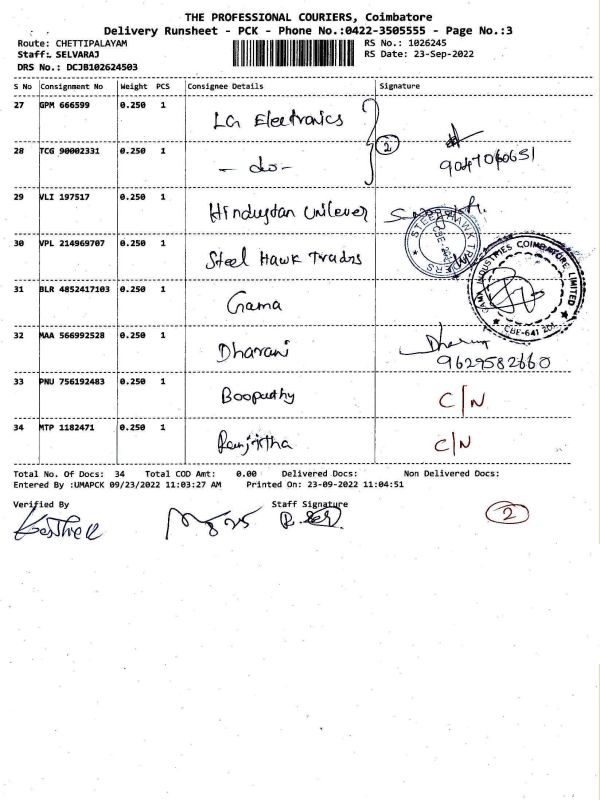 THE PROFESSIONAL COURIERS, Coimbatore
Delivery Runsheet - PCK - Phone No.:0422-3505555 - Page No.:3
Route: CHETTIPALAYAM RS No.: 1026245
Staff: SELVARAJ RS Date: 23-Sep-2022
DRS No.: DCJB102624503
S No Consignment No Weight PCS Consignee Details Signature
27 GPM 666599 0.250 1 LG Electronics
28 TCG 90002331 0.250 1 - do - 2 9047060651
29 VLI 197517 0.250 1 Hindustan Unilever
30 VPL 214969707 0.250 1 Steel Hawk Traders
STEEL HAWK TRADERS
31 BLR 4852417103 0.250 1 Gama
GAMA INDUSTRIES COIMBATORE LIMITED
CBE-641 201
32 MAA 566992528 0.250 1 Dharani
9629582660
33 PNU 756192483 0.250 1 Boopathy C/N
34 MTP 1182471 0.250 1 Ranjitha C/N
Total No. Of Docs: 34 Total COD Amt: 0.00 Delivered Docs: Non Delivered Docs:
Entered By :UMAPCK 09/23/2022 11:03:27 AM Printed On: 23-09-2022 11:04:51
Verified By Staff Signature
2